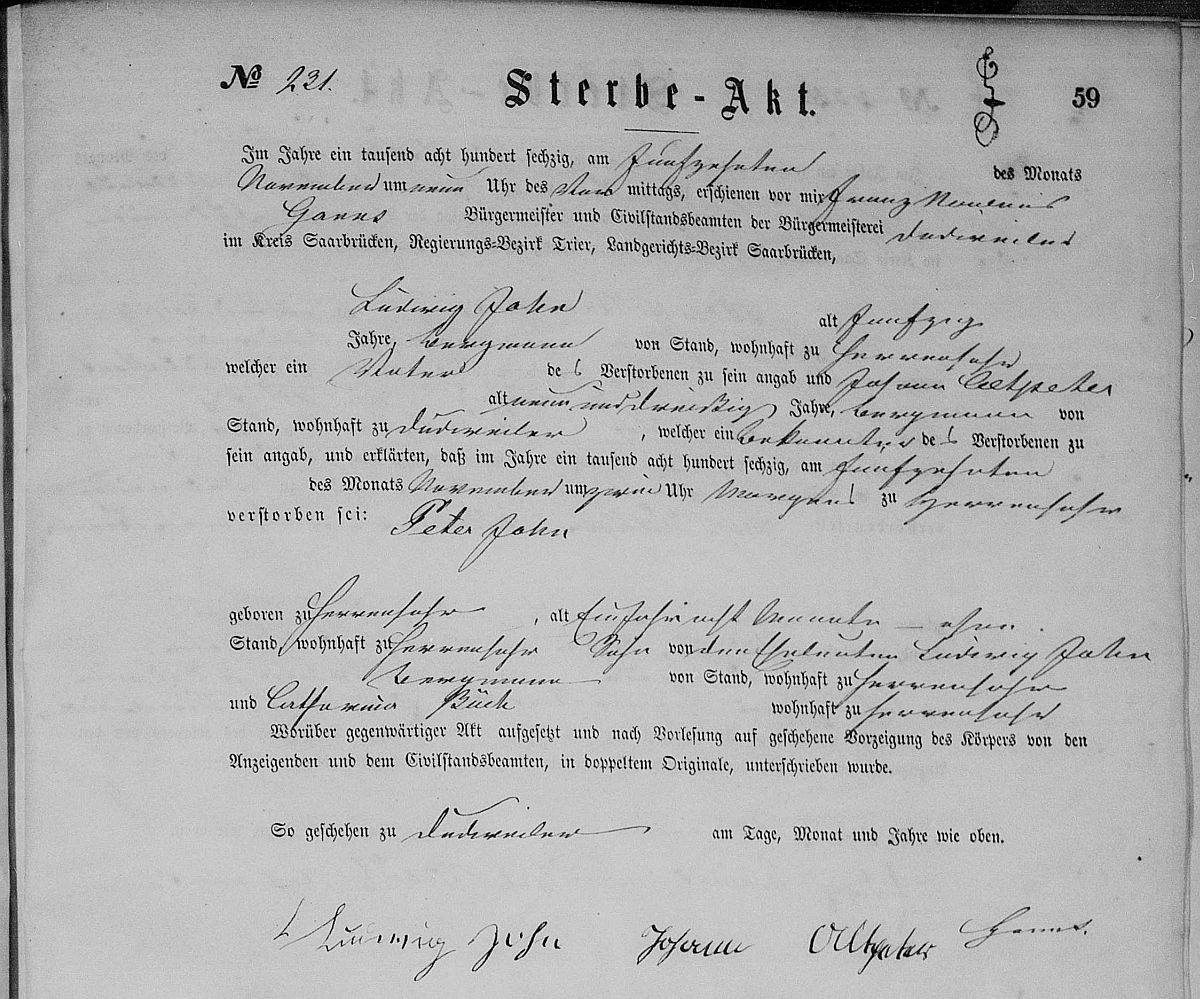 No 231. Sterbe-Akt. 59
Im Jahre ein tausend acht hundert sechzig, am Fünfzehnten des Monats
November um neun Uhr des Vor mittags, erschienen vor mir Franz
Bürgermeister und Civilstandsbeamten der Bürgermeisterei Dudweiler
im Kreis Saarbrücken, Regierungs-Bezirk Trier, Landgerichts-Bezirk Saarbrücken,
Ludwig John alt Fünfzig
Jahre, Bergmann von Stand, wohnhaft zu Herrensohr
welcher ein Vater des Verstorbenen zu sein angab und Johann Altpeter
alt neun und dreißig Jahre, Bergmann von
Stand, wohnhaft zu Dudweiler, welcher ein Bekannter des Verstorbenen zu
sein angab, und erklärten, daß im Jahre ein tausend acht hundert sechzig, am Fünfzehnten
des Monats November um zwei Uhr Morgens zu Herrensohr
verstorben sei: Peter John
geboren zu Herrensohr, alt Ein Jahr acht Monate ohne
Stand, wohnhaft zu Herrensohr Sohn von den Eheleuten Ludwig John
Bergmann von Stand, wohnhaft zu Herrensohr
und Catharina Bück wohnhaft zu Herrensohr
Worüber gegenwärtiger Akt aufgesetzt und nach Vorlesung auf geschehene Vorzeigung des Körpers von den
Anzeigenden und dem Civilstandsbeamten, in doppeltem Originale, unterschrieben wurde.
So geschehen zu Dudweiler am Tage, Monat und Jahre wie oben.
Ludwig John Johann Altpeter